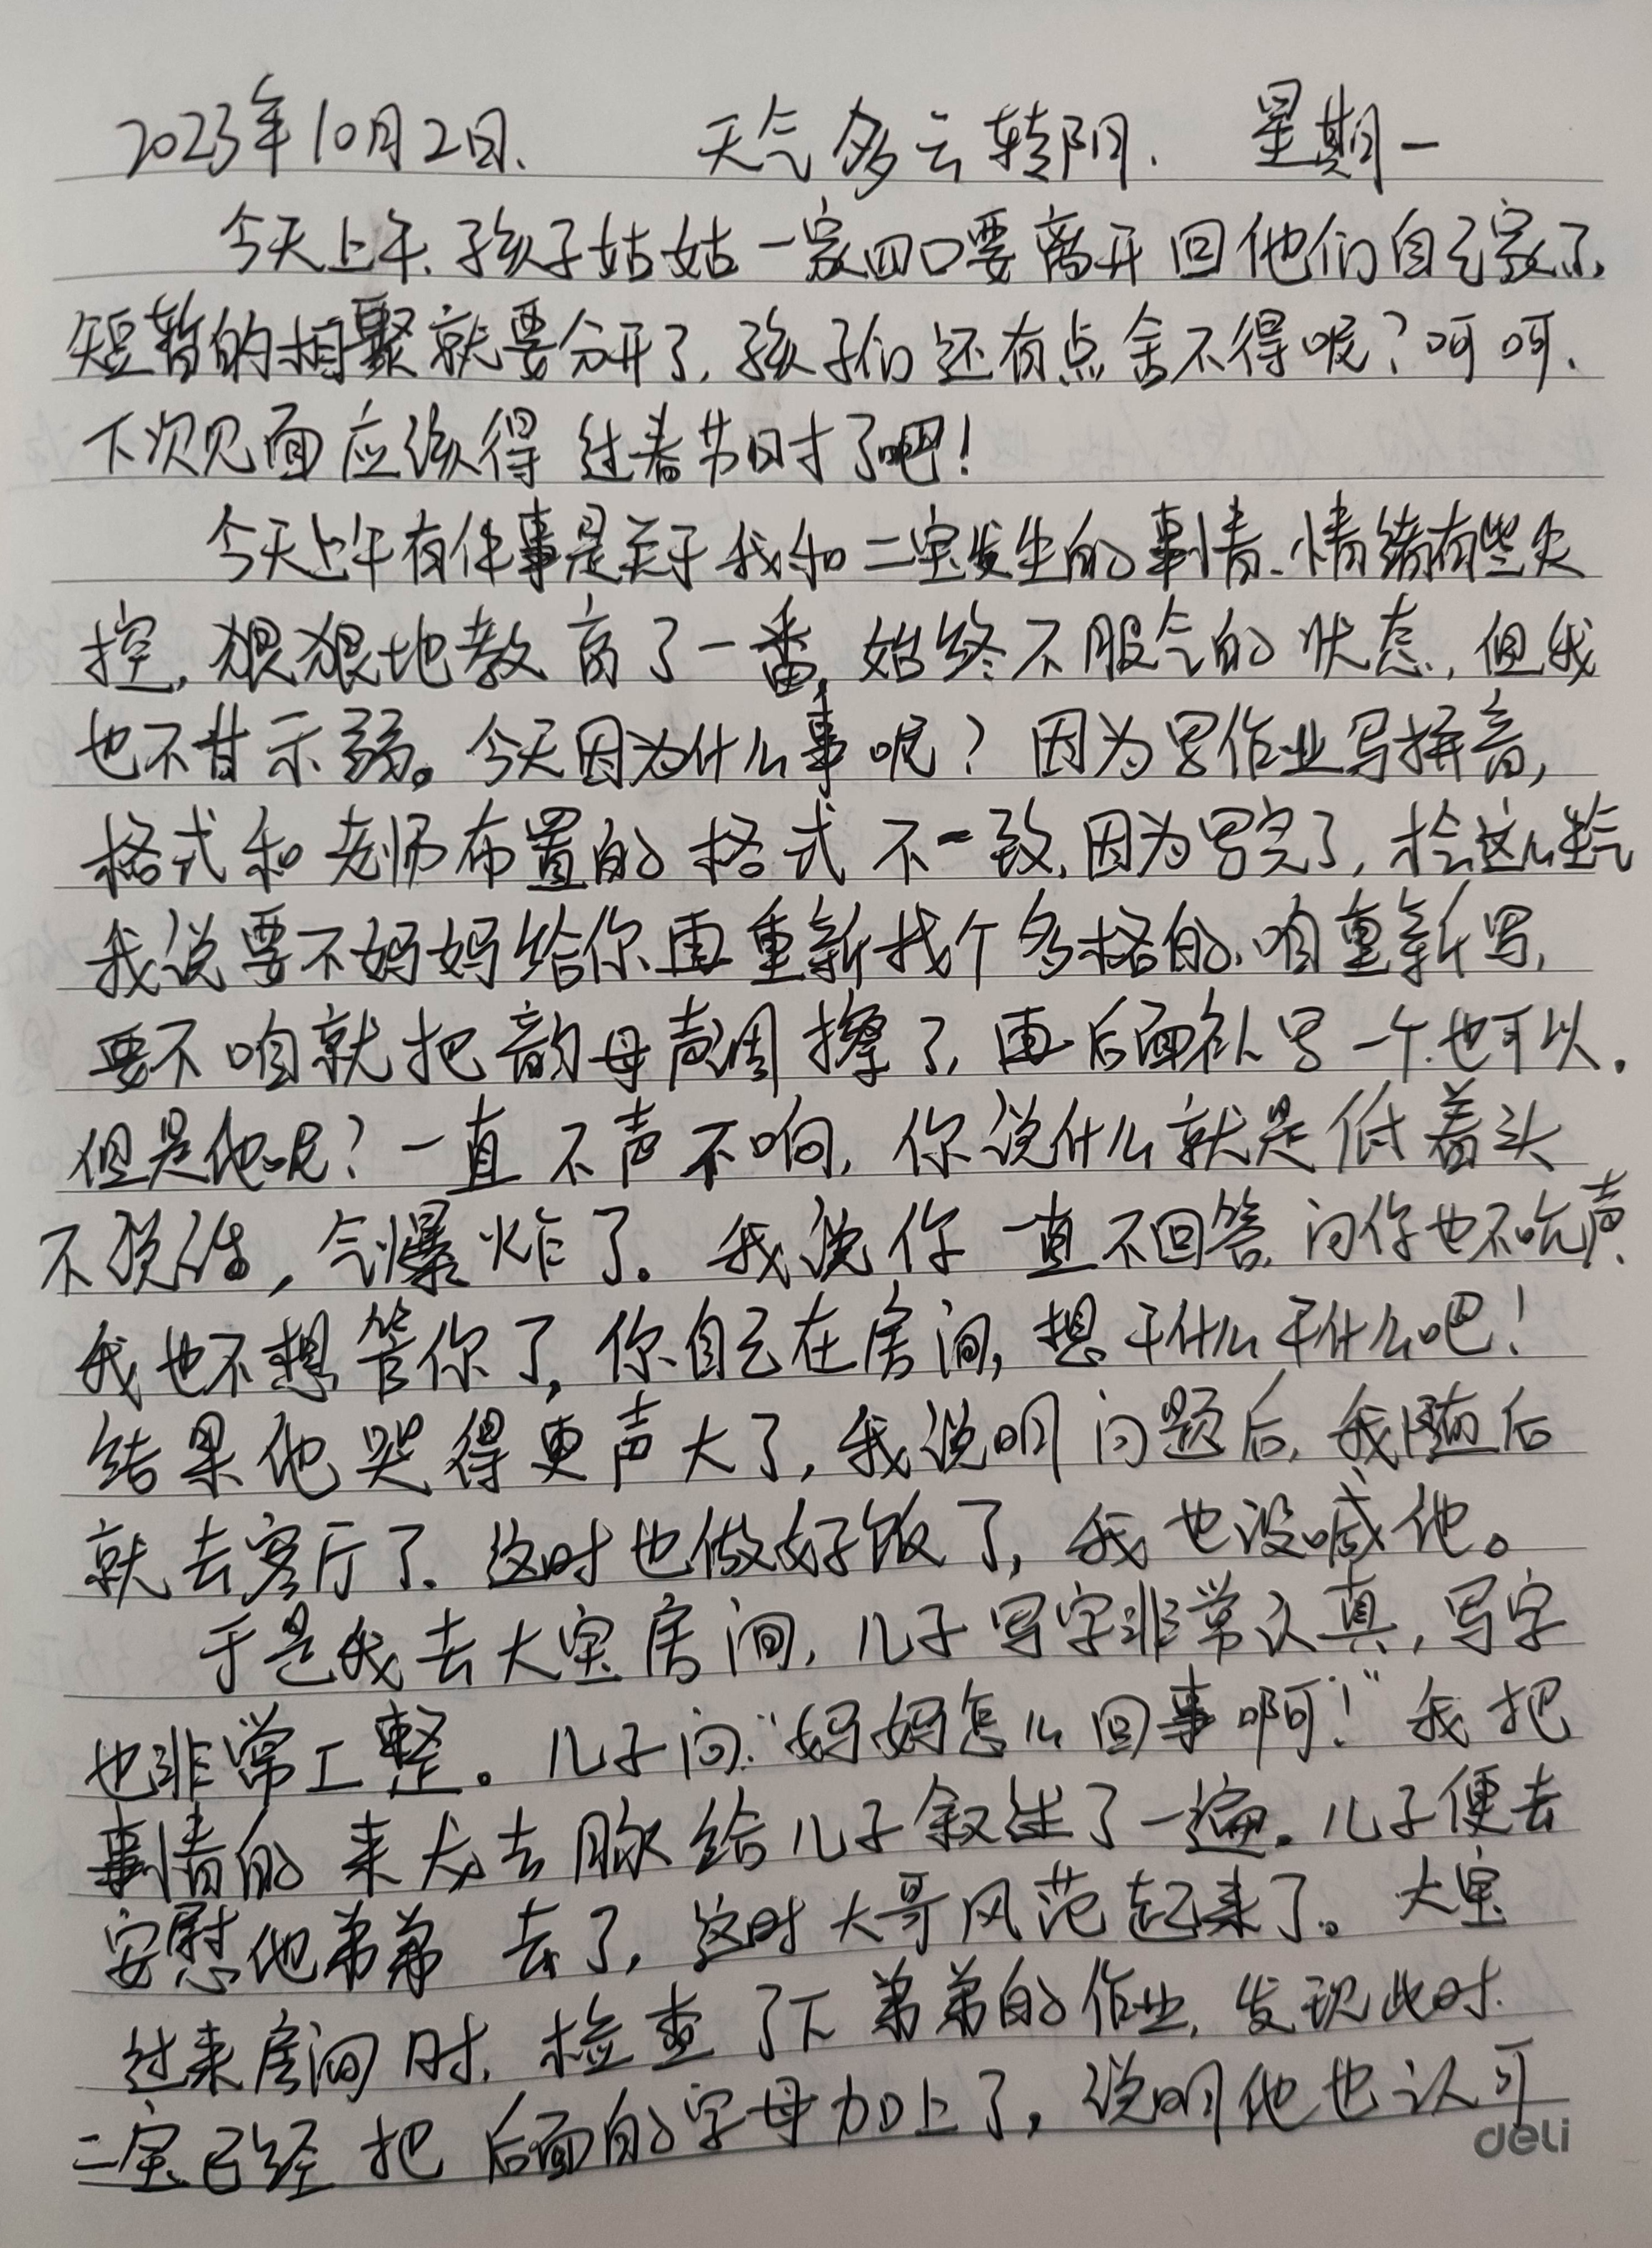 2023年10月2日、 天气多云转阴. 星期一
今天上午、孩子姑姑一家四口要离开回他们自己家了,
短暂的相聚就要分开了,孩子们还有点舍不得呢?呵呵.
下次见面应该得过春节时了吧!
今天上午有件事是关于我和二宝发生的事情.情绪有些失
控,狠狠地教育了一番,始终不服气的状态,但我
也不甘示弱。今天因为什么事呢?因为写作业写拼音,
格式和老师布置的格式不一致,因为写完了,才会这么生气
我说要不妈妈给你再重新找个多格的,咱重新写,
要不咱就把韵母声调擦了,再后面补写一个也可以.
但是他呢?一直不声不响,你说什么就是低着头
不说话,气爆炸了。我说你一直不回答,问你也不吭声,
我也不想管你了,你自己在房间,想干什么干什么吧!
结果他哭得更声大了,我说明问题后,我随后
就去客厅了.这时也做好饭了,我也没喊他。
于是我去大宝房间,儿子写字非常认真,写字
也非常工整。儿子问:“妈妈怎么回事啊!”我把
事情的来龙去脉给儿子叙述了一遍。儿子便去
安慰他弟弟去了,这时大哥风范起来了。大宝
过来房间时,检查了下弟弟的作业,发现此时
二宝已经把后面的字母加上了,说明他也认可
deli